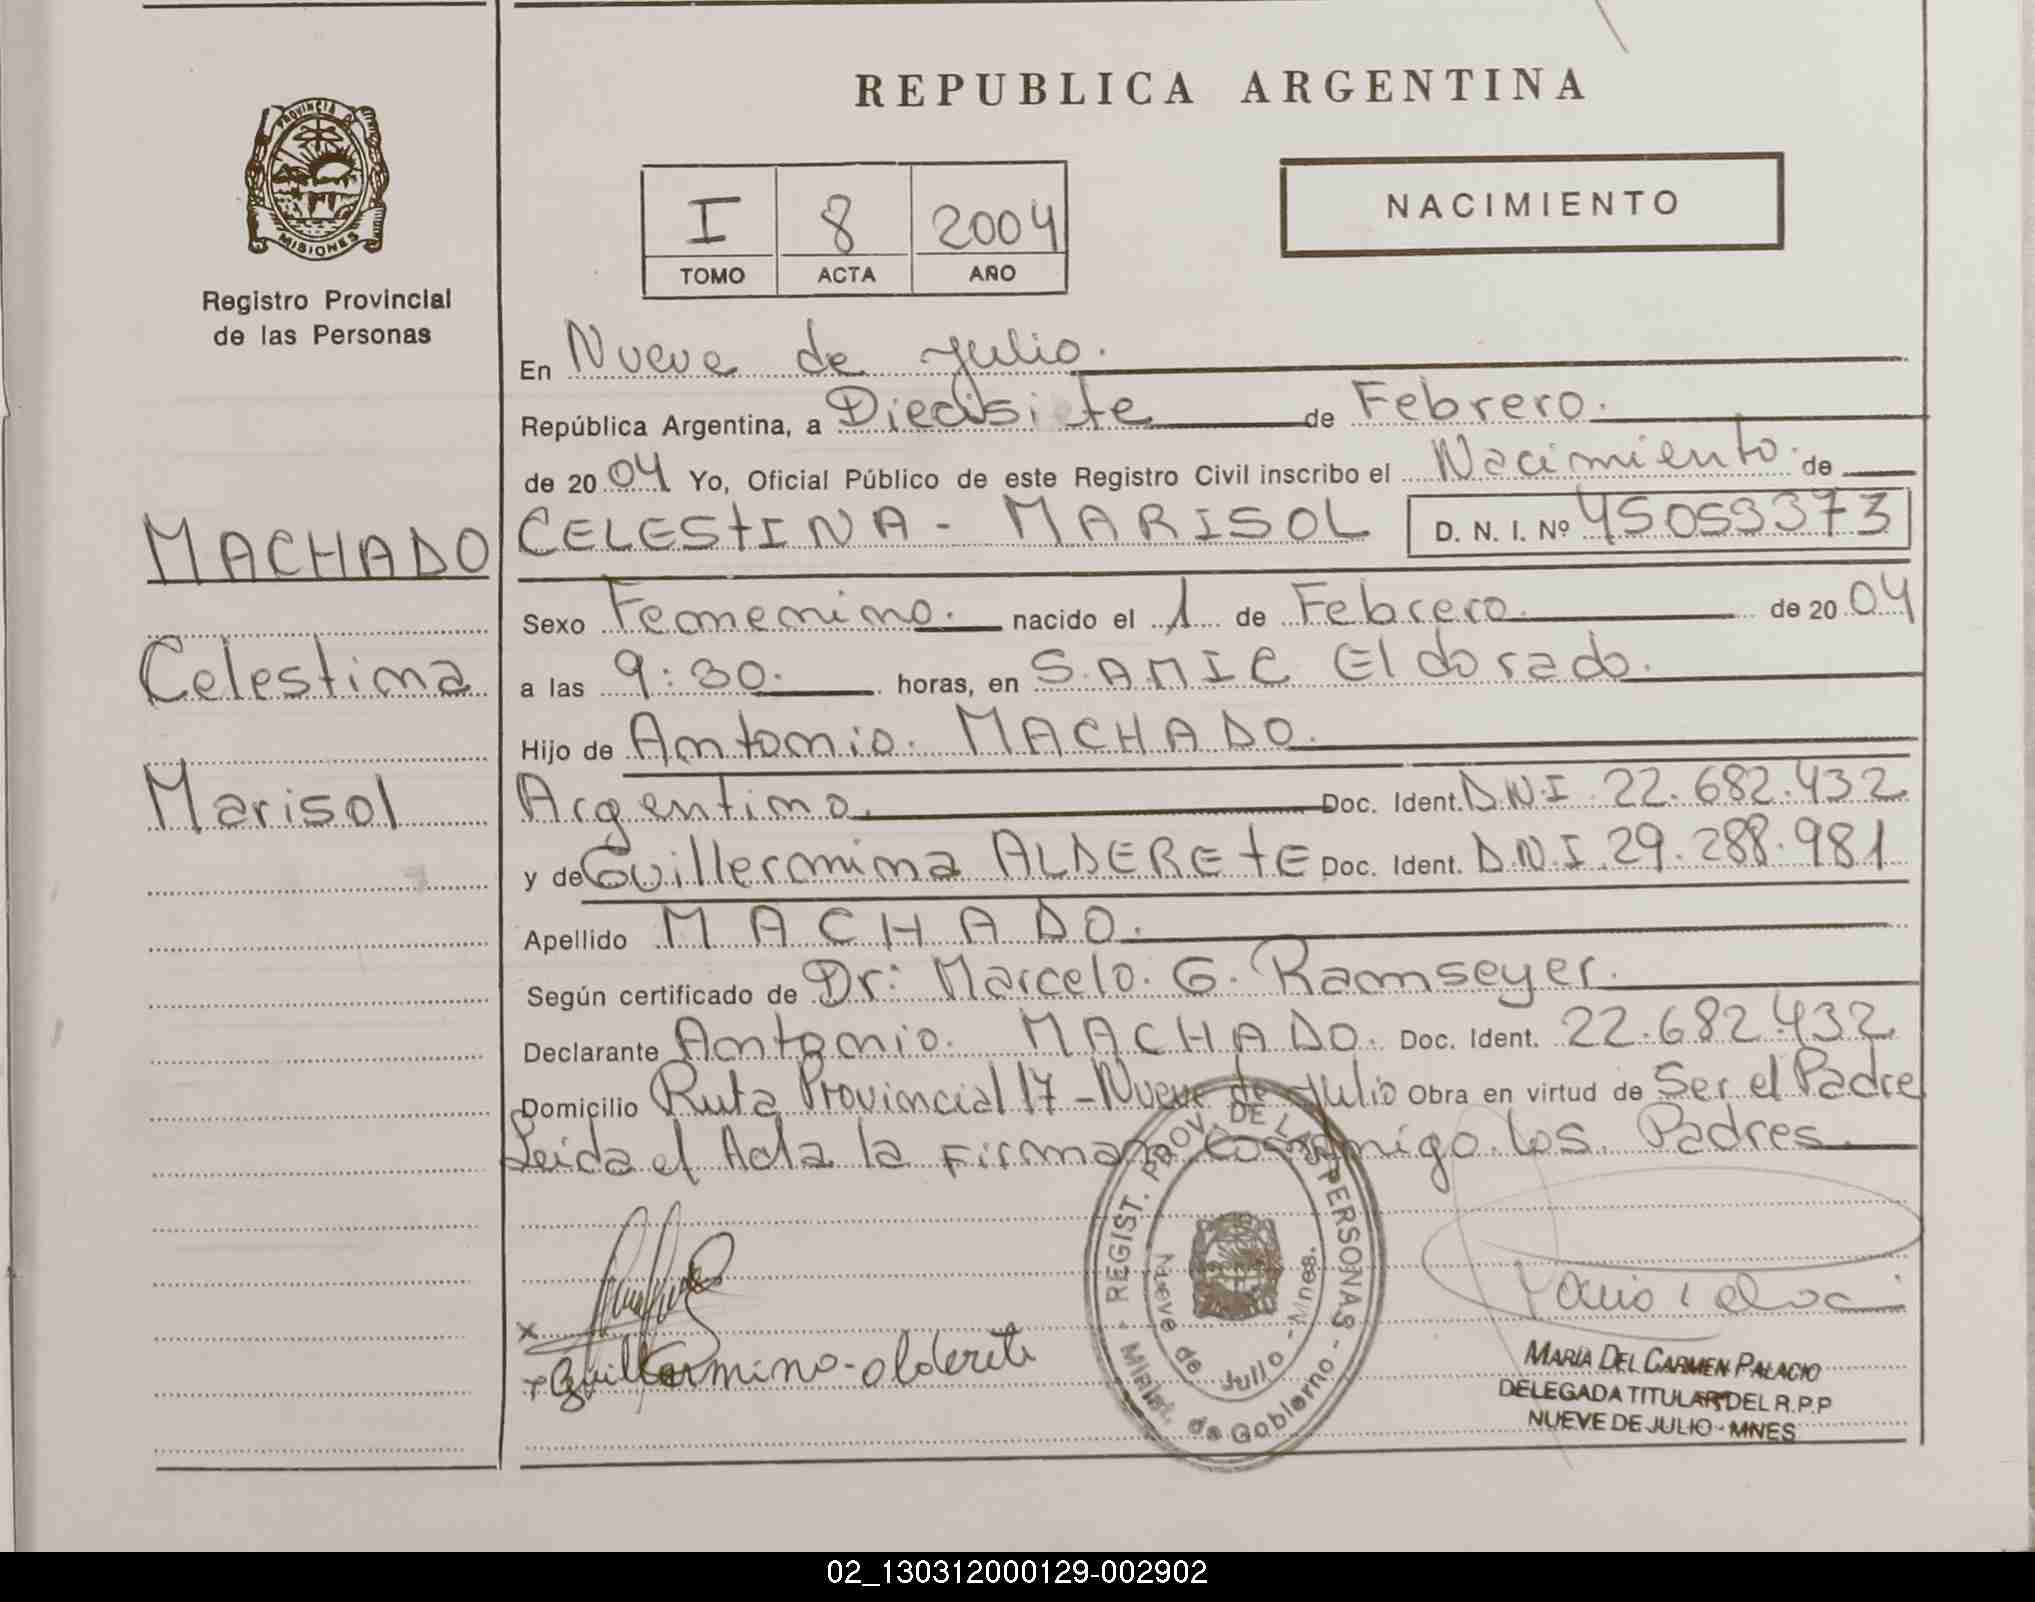 REPUBLICA ARGENTINA
PROVINCIA DE
MISIONES
Registro Provincial
de las Personas
I 8 2004
TOMO ACTA AÑO
NACIMIENTO
En Nueve de Julio.
República Argentina, a Diecisiete de Febrero.
de 2004 Yo, Oficial Público de este Registro Civil inscribo el Nacimiento de
MACHADO
Celestina
Marisol
CELESTINA - MARISOL D. N. I. Nº 45053373
Sexo Femenino. nacido el 1 de Febrero de 2004
a las 9:30. horas, en S.AMIC Eldorado.
Hijo de Antonio. MACHADO.
Argentino. Doc. Ident. D.N.I 22.682.432
y de Guillermina ALDERETE Doc. Ident. D.N.I 29.288.981
Apellido MACHADO.
Según certificado de Dr: Marcelo. G. Ramseyer.
Declarante Antonio. MACHADO. Doc. Ident. 22.682.432
Domicilio Ruta Provincial 17 - Nueve de Julio Obra en virtud de Ser el Padre
Leida el Acta la Firman Conmigo los Padres.
x
Guillermina - alderete
REGIST. PROV. DE LAS PERSONAS - Minist. de Gobierno -
Nueve de Julio - Mnes.
MARIA DEL CARMEN PALACIO
DELEGADA TITULAR DEL R.P.P
NUEVE DE JULIO - MNES
02_130312000129-002902